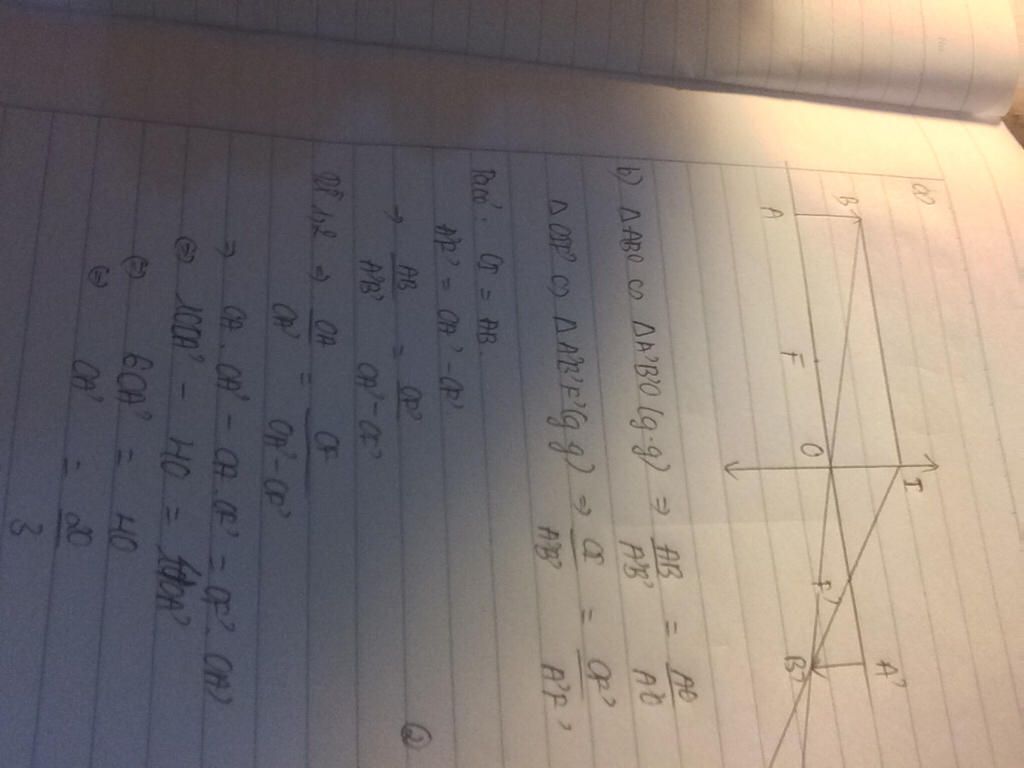 a)
B
I
A
F
O
F'
A'
B'
b) Δ ABO ∽ Δ A'B'O (g-g) ⇒ AB / A'B' = AO / A'O
Δ OIF' ∽ Δ A'B'F' (g-g) ⇒ OI / A'B' = OF' / A'F'
Ta có: OI = AB
A'F' = OA' - OF'
⇒ AB / A'B' = OF' / OA' - OF' (2)
Từ 1,2 ⇒ OA / OA' = OF' / OA' - OF'
⇒ OA . OA' - OA . OF' = OF' . OA'
⇔ 10OA' - 40 = OA'
⇔ 6OA' = 40
⇔ OA' = 20 / 3